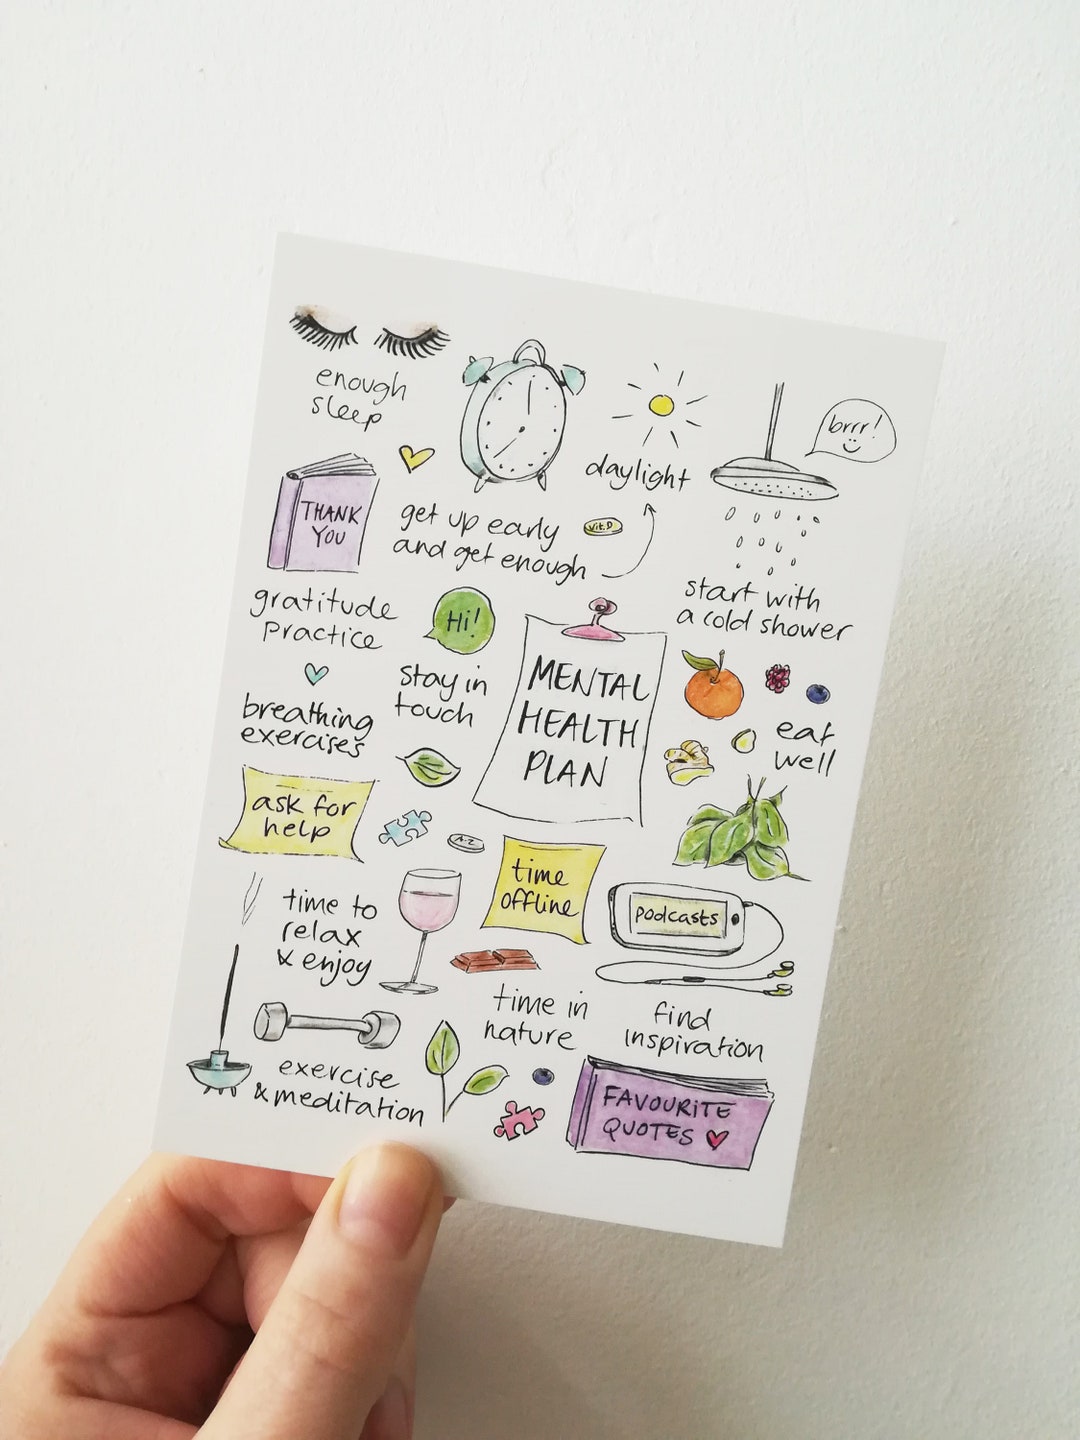 enough
sleep
daylight
brrr!
THANK
YOU
get up early
and get enough
Vit.D
start with
a cold shower
gratitude
practice
Hi!
stay in
touch
MENTAL
HEALTH
PLAN
eat
well
breathing
exercises
ask for
help
A-Z
time
offline
podcasts
time to
relax
& enjoy
time in
nature
find
inspiration
exercise
& meditation
FAVOURITE
QUOTES